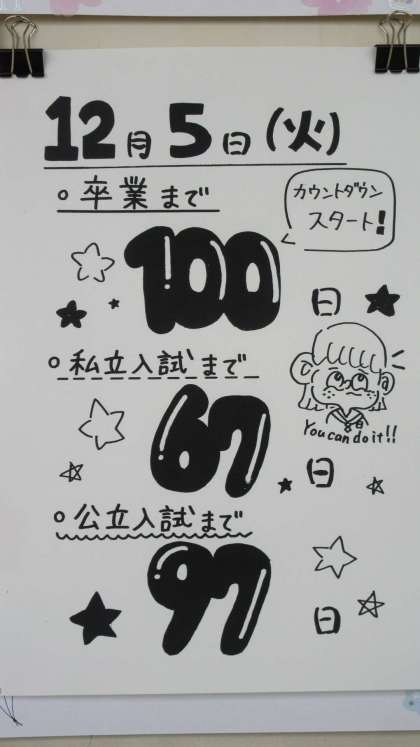 12月5日(火)
。卒業まで
カウントダウン
スタート!
100日
。私立入試まで
You can do it!!
67日
。公立入試まで
97日